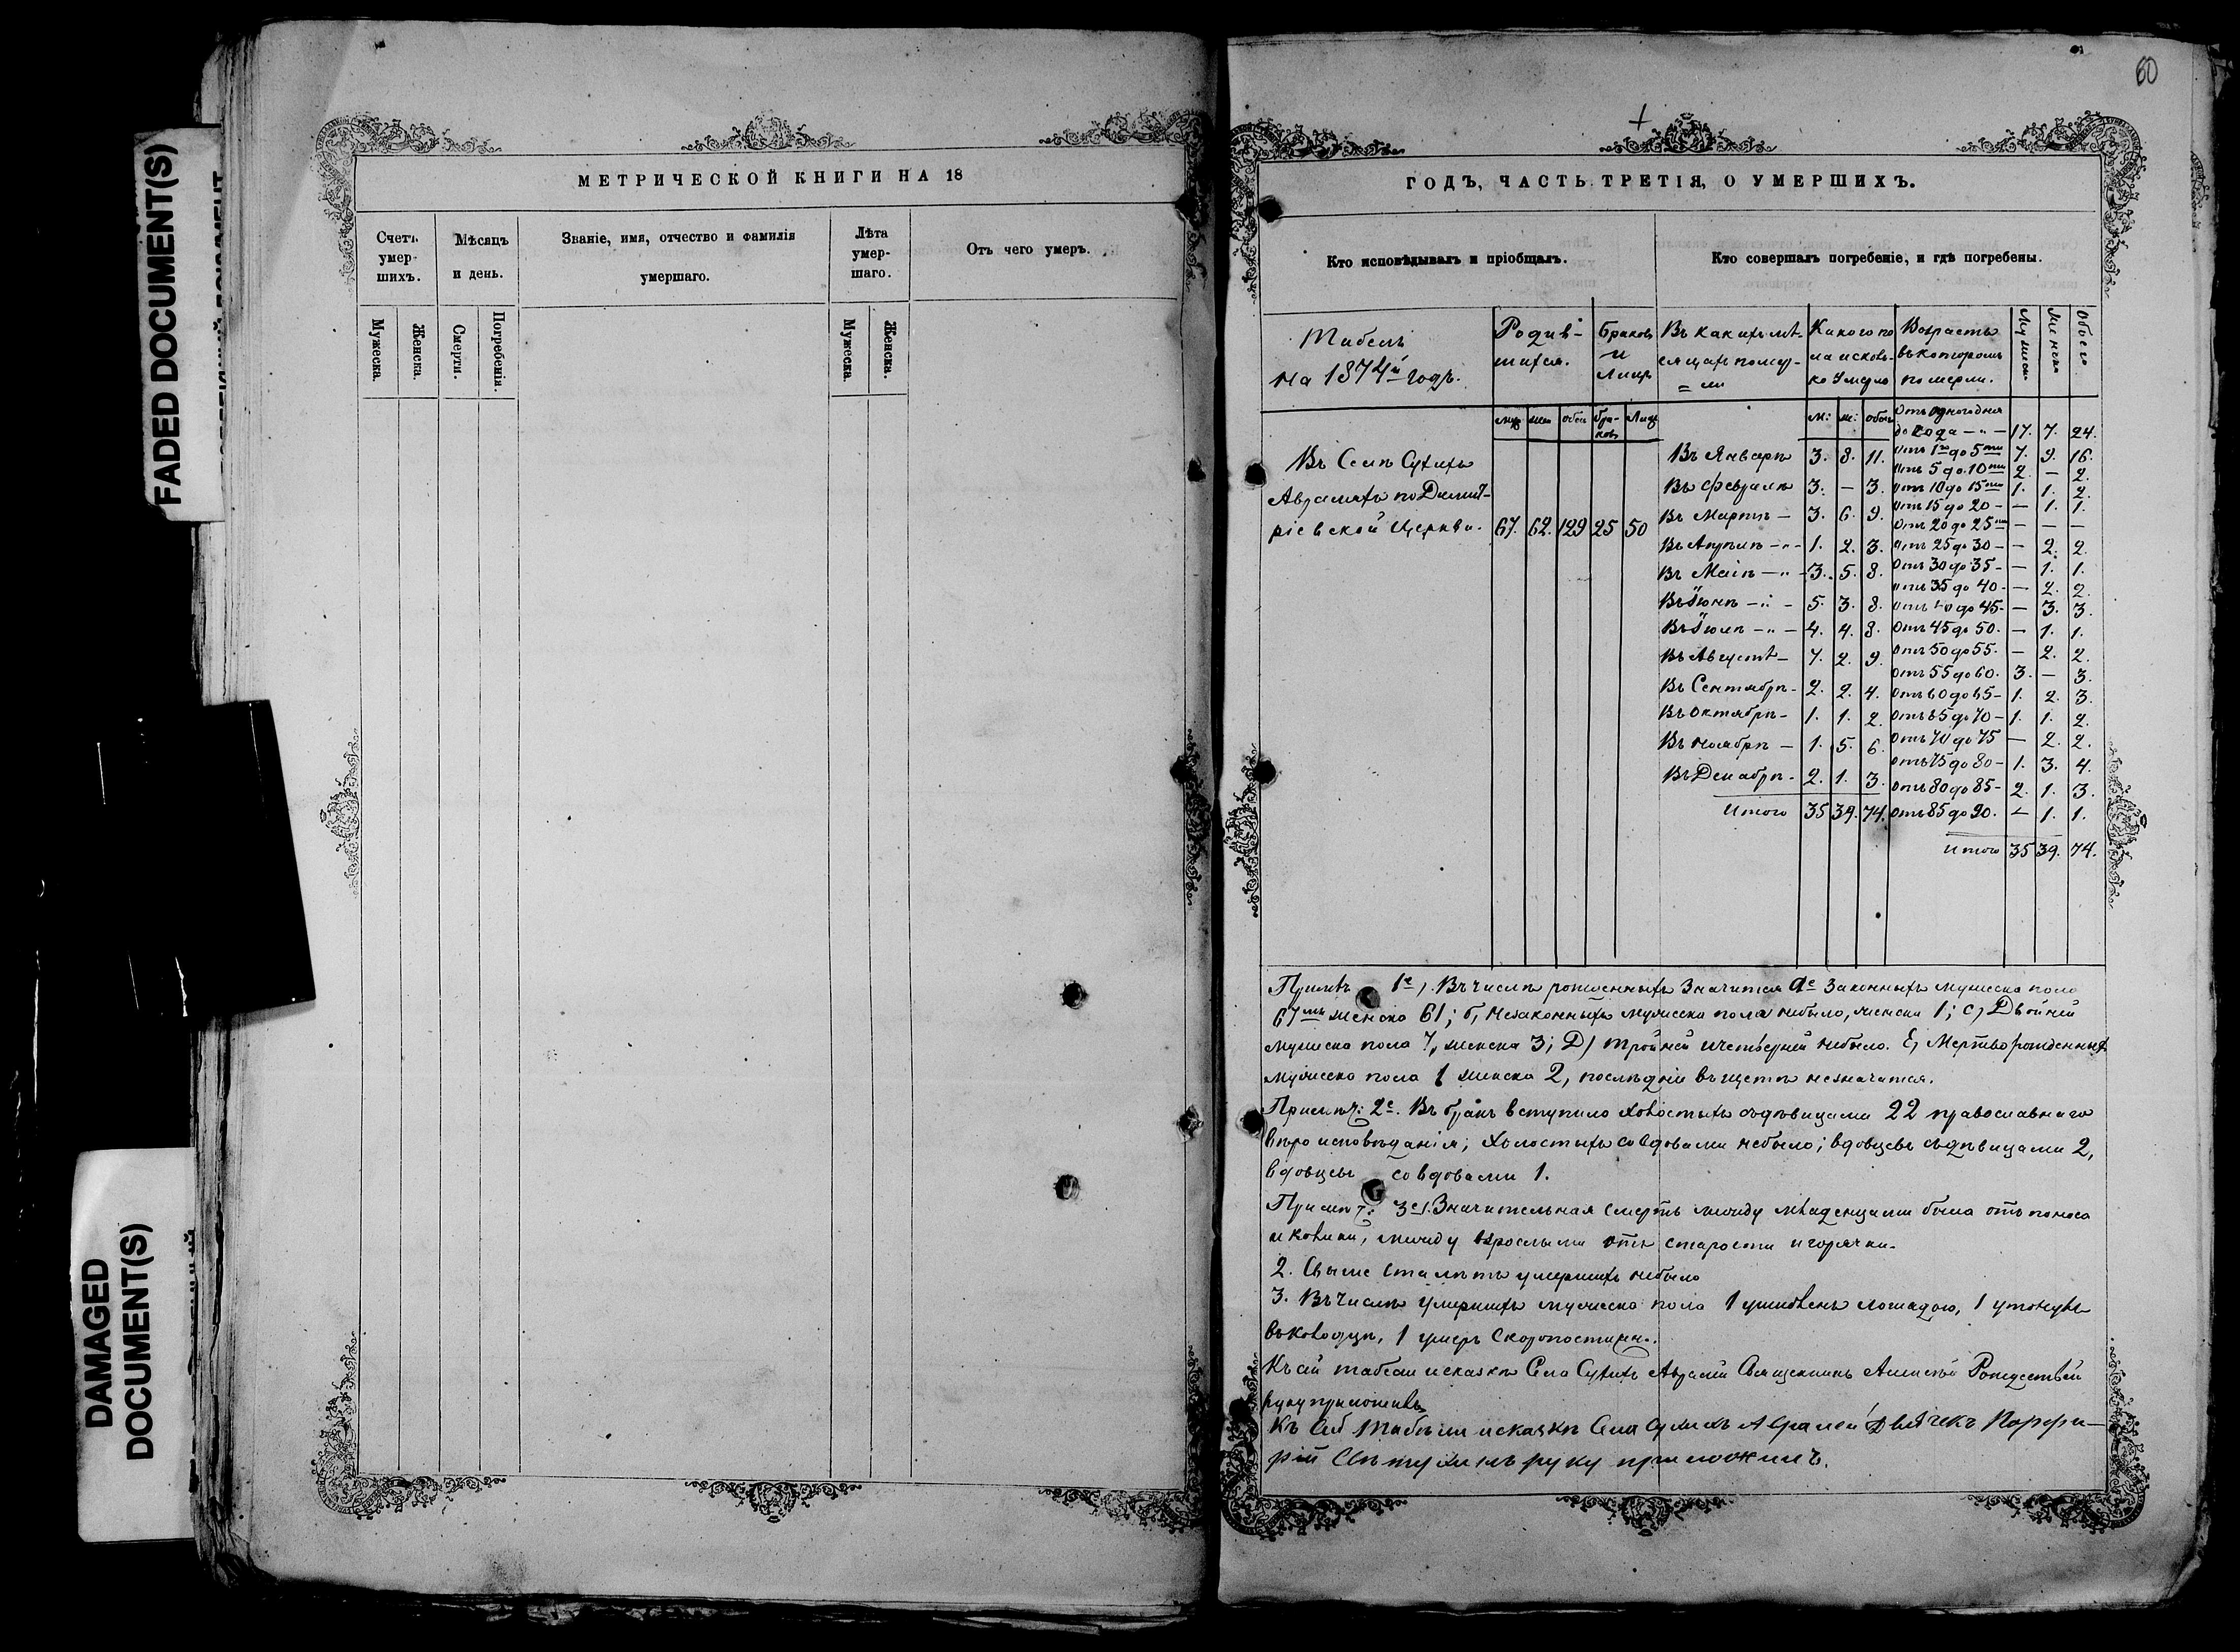 FADED DOCUMENT(S)
DAMAGED
DOCUMENT(S)
МЕТРИЧЕСКОЙ КНИГИ НА 18
Счетъ умершихъ.
Мѣсяцъ и день.
Званіе, имя, отчество и фамилія умершаго.
Лѣта умершаго.
Отъ чего умеръ.
Мужеска.
Женска.
Смерти.
Погребенія.
Мужеска.
Женска.
60
ГОДЪ, ЧАСТЬ ТРЕТІЯ, О УМЕРШИХЪ.
Кто исповѣдывалъ и пріобщалъ.
Кто совершалъ погребеніе, и гдѣ погребены.
Табель на 1874й годъ.
Родившихся.
Браковъ и лицъ
Въ какихъ мѣсяцахъ помер=ли
Какого пола и сколько умерло
Возрастъ въ которомъ померли.
Мужеск
Женск
Обоего
муж жен обоего браковъ Лицъ
м: ж: обоего
Въ Селѣ Сухихъ
Авраматъ по Димит-
ріевской Церкви. 67. 62. 129 25 50
Въ Январѣ 3. 8. 11.
Въ Февралѣ 3. — 3.
Въ Мартѣ — 3. 6. 9.
Въ Апрѣлѣ — 1. 2. 3.
Въ Маіѣ — 3. 5. 8.
Въ Іюнѣ — 5. 3. 8.
Въ Іюлѣ — 4. 4. 8.
Въ Августѣ — 7. 2. 9.
Въ Сентябрѣ - 2. 2. 4.
Въ Октябрѣ - 1. 1. 2.
Въ Ноябрѣ — 1. 5. 6.
Въ Декабрѣ - 2. 1. 3.
Итого 35 39. 74.
Отъ одного дня
до года — 17. 7. 24.
Отъ 1го до 5ти 7. 9. 16.
Отъ 5 до 10ти 2. — 2.
Отъ 10 до 15ти 1. 1. 2.
Отъ 15 до 20 — — 1. 1.
Отъ 20 до 25ти — — —
Отъ 25 до 30 — — 2. 2.
Отъ 30 до 35 - — 1. 1.
Отъ 35 до 40 - — 2. 2.
Отъ 40 до 45 - — 3. 3.
Отъ 45 до 50. — 1. 1.
Отъ 50 до 55. — 2. 2.
Отъ 55 до 60. 3. — 3.
Отъ 60 до 65 - 1. 2. 3.
Отъ 65 до 70 - 1. 1. 2.
Отъ 70 до 75 — 2. 2.
Отъ 75 до 80 - 1. 3. 4.
Отъ 80 до 85 - 2. 1. 3.
Отъ 85 до 90. — 1. 1.
Итого 35 39. 74.
Примѣч 1е). Въ числѣ рожденныхъ значится законныхъ мужеска пола
67мь женска 61; б, незаконныхъ мужеска пола небыло, женска 1; с, Двойней
мужеска пола 7, женска 3; D) тройней и четверней небыло. Е, Мертворожденныхъ
мужеска пола 1 женска 2, послѣдніи въ щетъ незначатся.
Примѣч: 2е. Въ бракъ вступило холостыхъ съ дѣвицами 22 православнаго
вѣро исповѣданія; холостыхъ со вдовами небыло; вдовцевъ съ дѣвицами 2,
вдовцевъ со вдовами 1.
Примѣч: 3е). Значительная смерть между младенцами была отъ поноса
и взрослыми отъ старости и горячки.
2. Свыше ста лѣтъ умершихъ небыло
3. Въ числѣ умершихъ мужеска пола 1 ушибленъ лошадью, 1 утонувъ
въ колодцѣ, 1 умеръ скоропостижн..
Къ сей табели и сказкѣ Села Сухихъ Священникъ Алексѣй Рождествен
руку приложилъ
Къ сей Табели и сказкѣ Села Сухихъ Дьячекъ Порфи-
рій руку приложилъ.